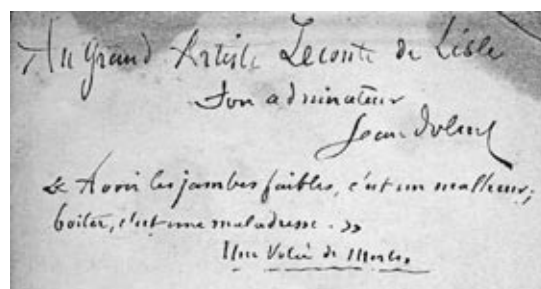 Au Grand Artiste Leconte de Lisle
Son admirateur
Jean Dolent
« Avoir les jambes faibles, c'est un malheur;
boiter, c'est une maladresse. »
Une Volée de Merles